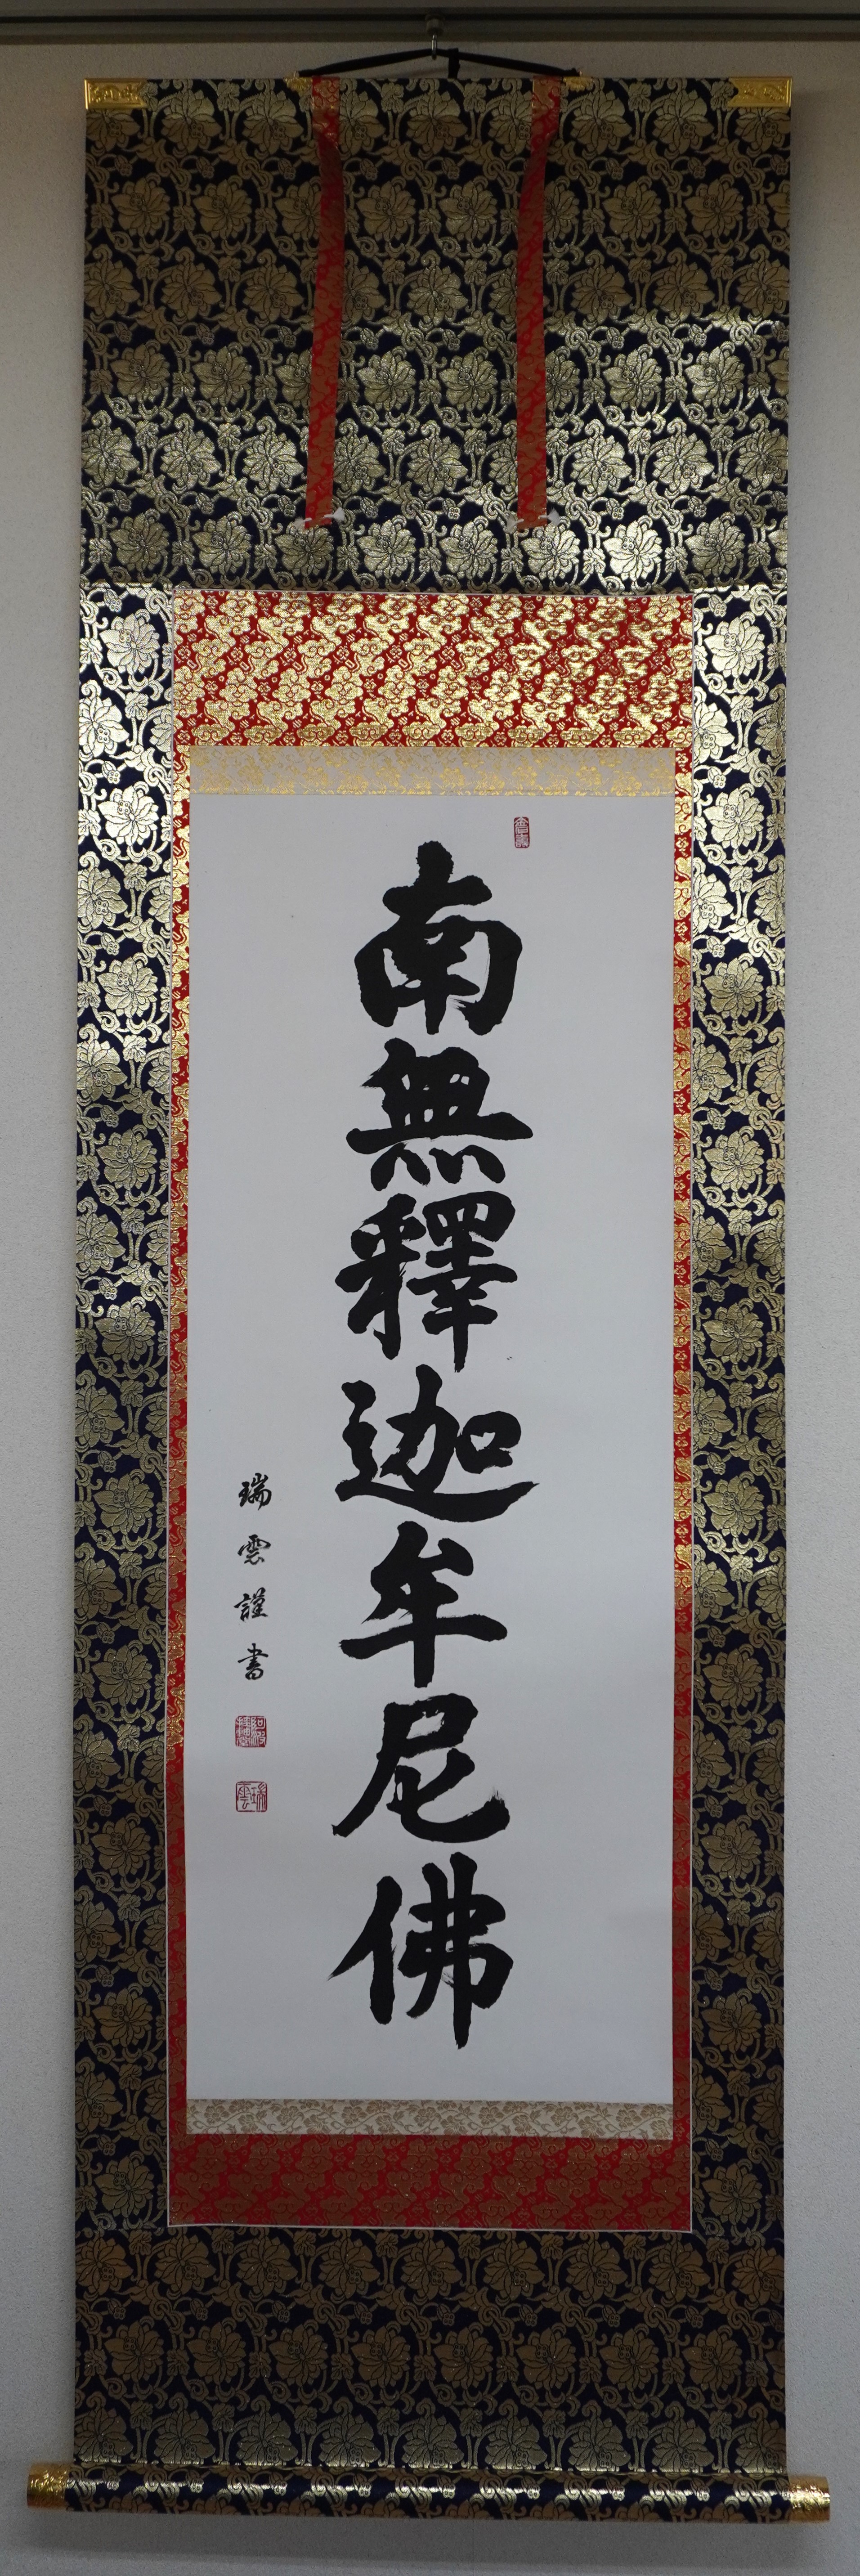 南無釋迦牟尼佛
瑞雲謹書
瑞雲